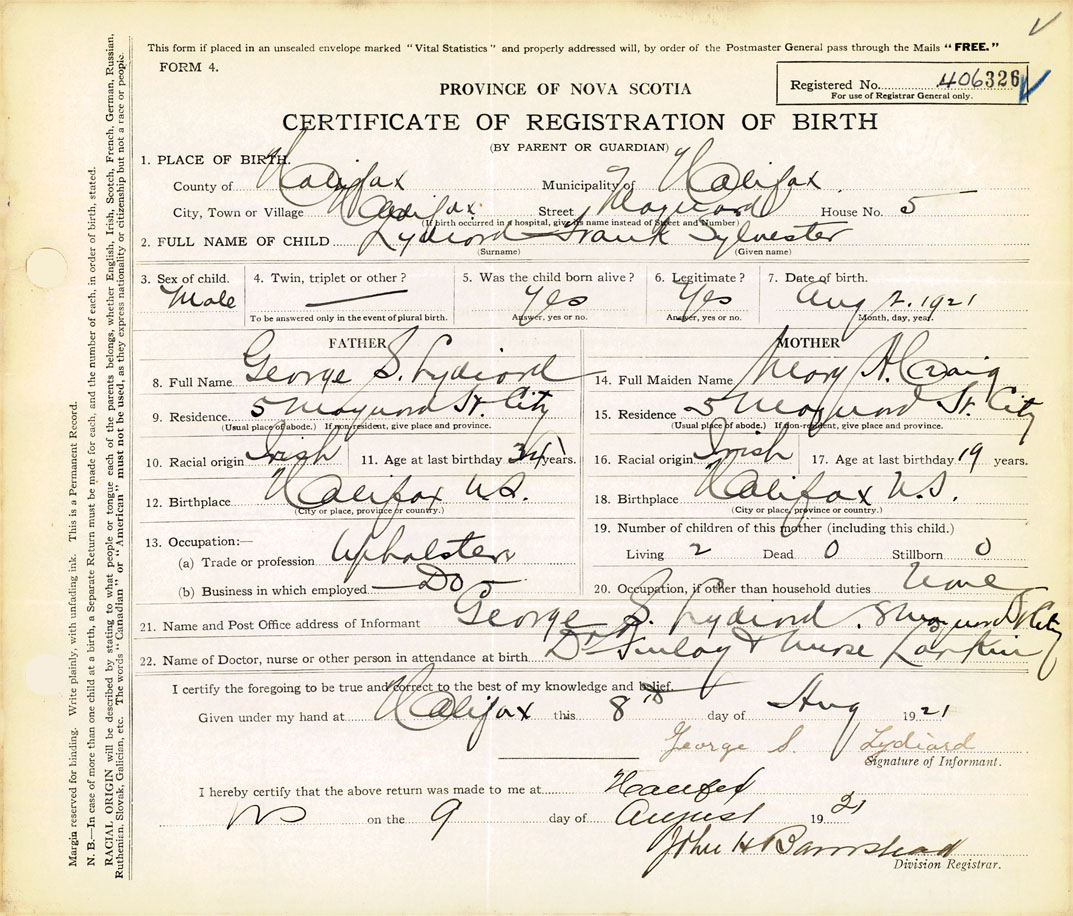 This form if placed in an unsealed envelope marked "Vital Statistics" and properly addressed will, by order of the Postmaster General pass through the Mails "FREE."
FORM 4.
Registered No. 406326
For use of Registrar General only.
PROVINCE OF NOVA SCOTIA
CERTIFICATE OF REGISTRATION OF BIRTH
(BY PARENT OR GUARDIAN)
1. PLACE OF BIRTH.
County of Halifax Municipality of Halifax
City, Town or Village Halifax Street Maynard House No. 5
(If birth occurred in a hospital, give its name instead of Street and Number)
2. FULL NAME OF CHILD Lydiard Frank Sylvester
(Surname) (Given name)
3. Sex of child. 4. Twin, triplet or other? 5. Was the child born alive? 6. Legitimate? 7. Date of birth.
Male — Yes Yes Aug 7. 1921
To be answered only in the event of plural birth. Answer, yes or no. Answer, yes or no. Month, day, year.
FATHER MOTHER
8. Full Name George S. Lydiard 14. Full Maiden Name Mary A. Craig
9. Residence 5 Maynard St. City 15. Residence 5 Maynard St. City
(Usual place of abode.) If non-resident, give place and province. (Usual place of abode.) If non-resident, give place and province.
10. Racial origin Irish 11. Age at last birthday years. 16. Racial origin Irish 17. Age at last birthday 19 years.
12. Birthplace Halifax N.S. 18. Birthplace Halifax N.S.
(City or place, province or country.) (City or place, province or country.)
13. Occupation:— 19. Number of children of this mother (including this child.)
(a) Trade or profession Upholsterer Living 2 Dead 0 Stillborn 0
(b) Business in which employed Do 20. Occupation, if other than household duties None
21. Name and Post Office address of Informant George S. Lydiard 5 Maynard St City
22. Name of Doctor, nurse or other person in attendance at birth Dr Finlay & Nurse Larkin
I certify the foregoing to be true and correct to the best of my knowledge and belief.
Given under my hand at Halifax this 8th day of Aug 1921
George S. Lydiard
Signature of Informant.
I hereby certify that the above return was made to me at Halifax
NS on the 9 day of August 1921
John H Barnstead
Division Registrar.
Margin reserved for binding. Write plainly, with unfading ink. This is a Permanent Record.
N. B.—In case of more than one child at a birth, a Separate Return must be made for each, and the number of each, in order of birth, stated.
RACIAL ORIGIN will be described by stating to what people or tongue each of the parents belongs, whether English, Irish, Scotch, French, German, Russian,
Ruthenian, Slovak, Galician, etc. The words "Canadian" or "American" must not be used, as they express nationality or citizenship but not a race or people.